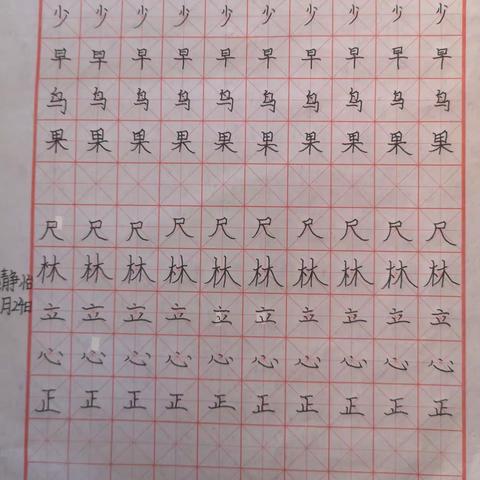 少少少少少少少少少少
早早早早早早早早早早
鸟鸟鸟鸟鸟鸟鸟鸟鸟鸟
果果果果果果果果果果
尺尺尺尺尺尺尺尺尺尺
林林林林林林林林林林
立立立立立立立立立立
心心心心心心心心心心
正正正正正正正正正正
静怡